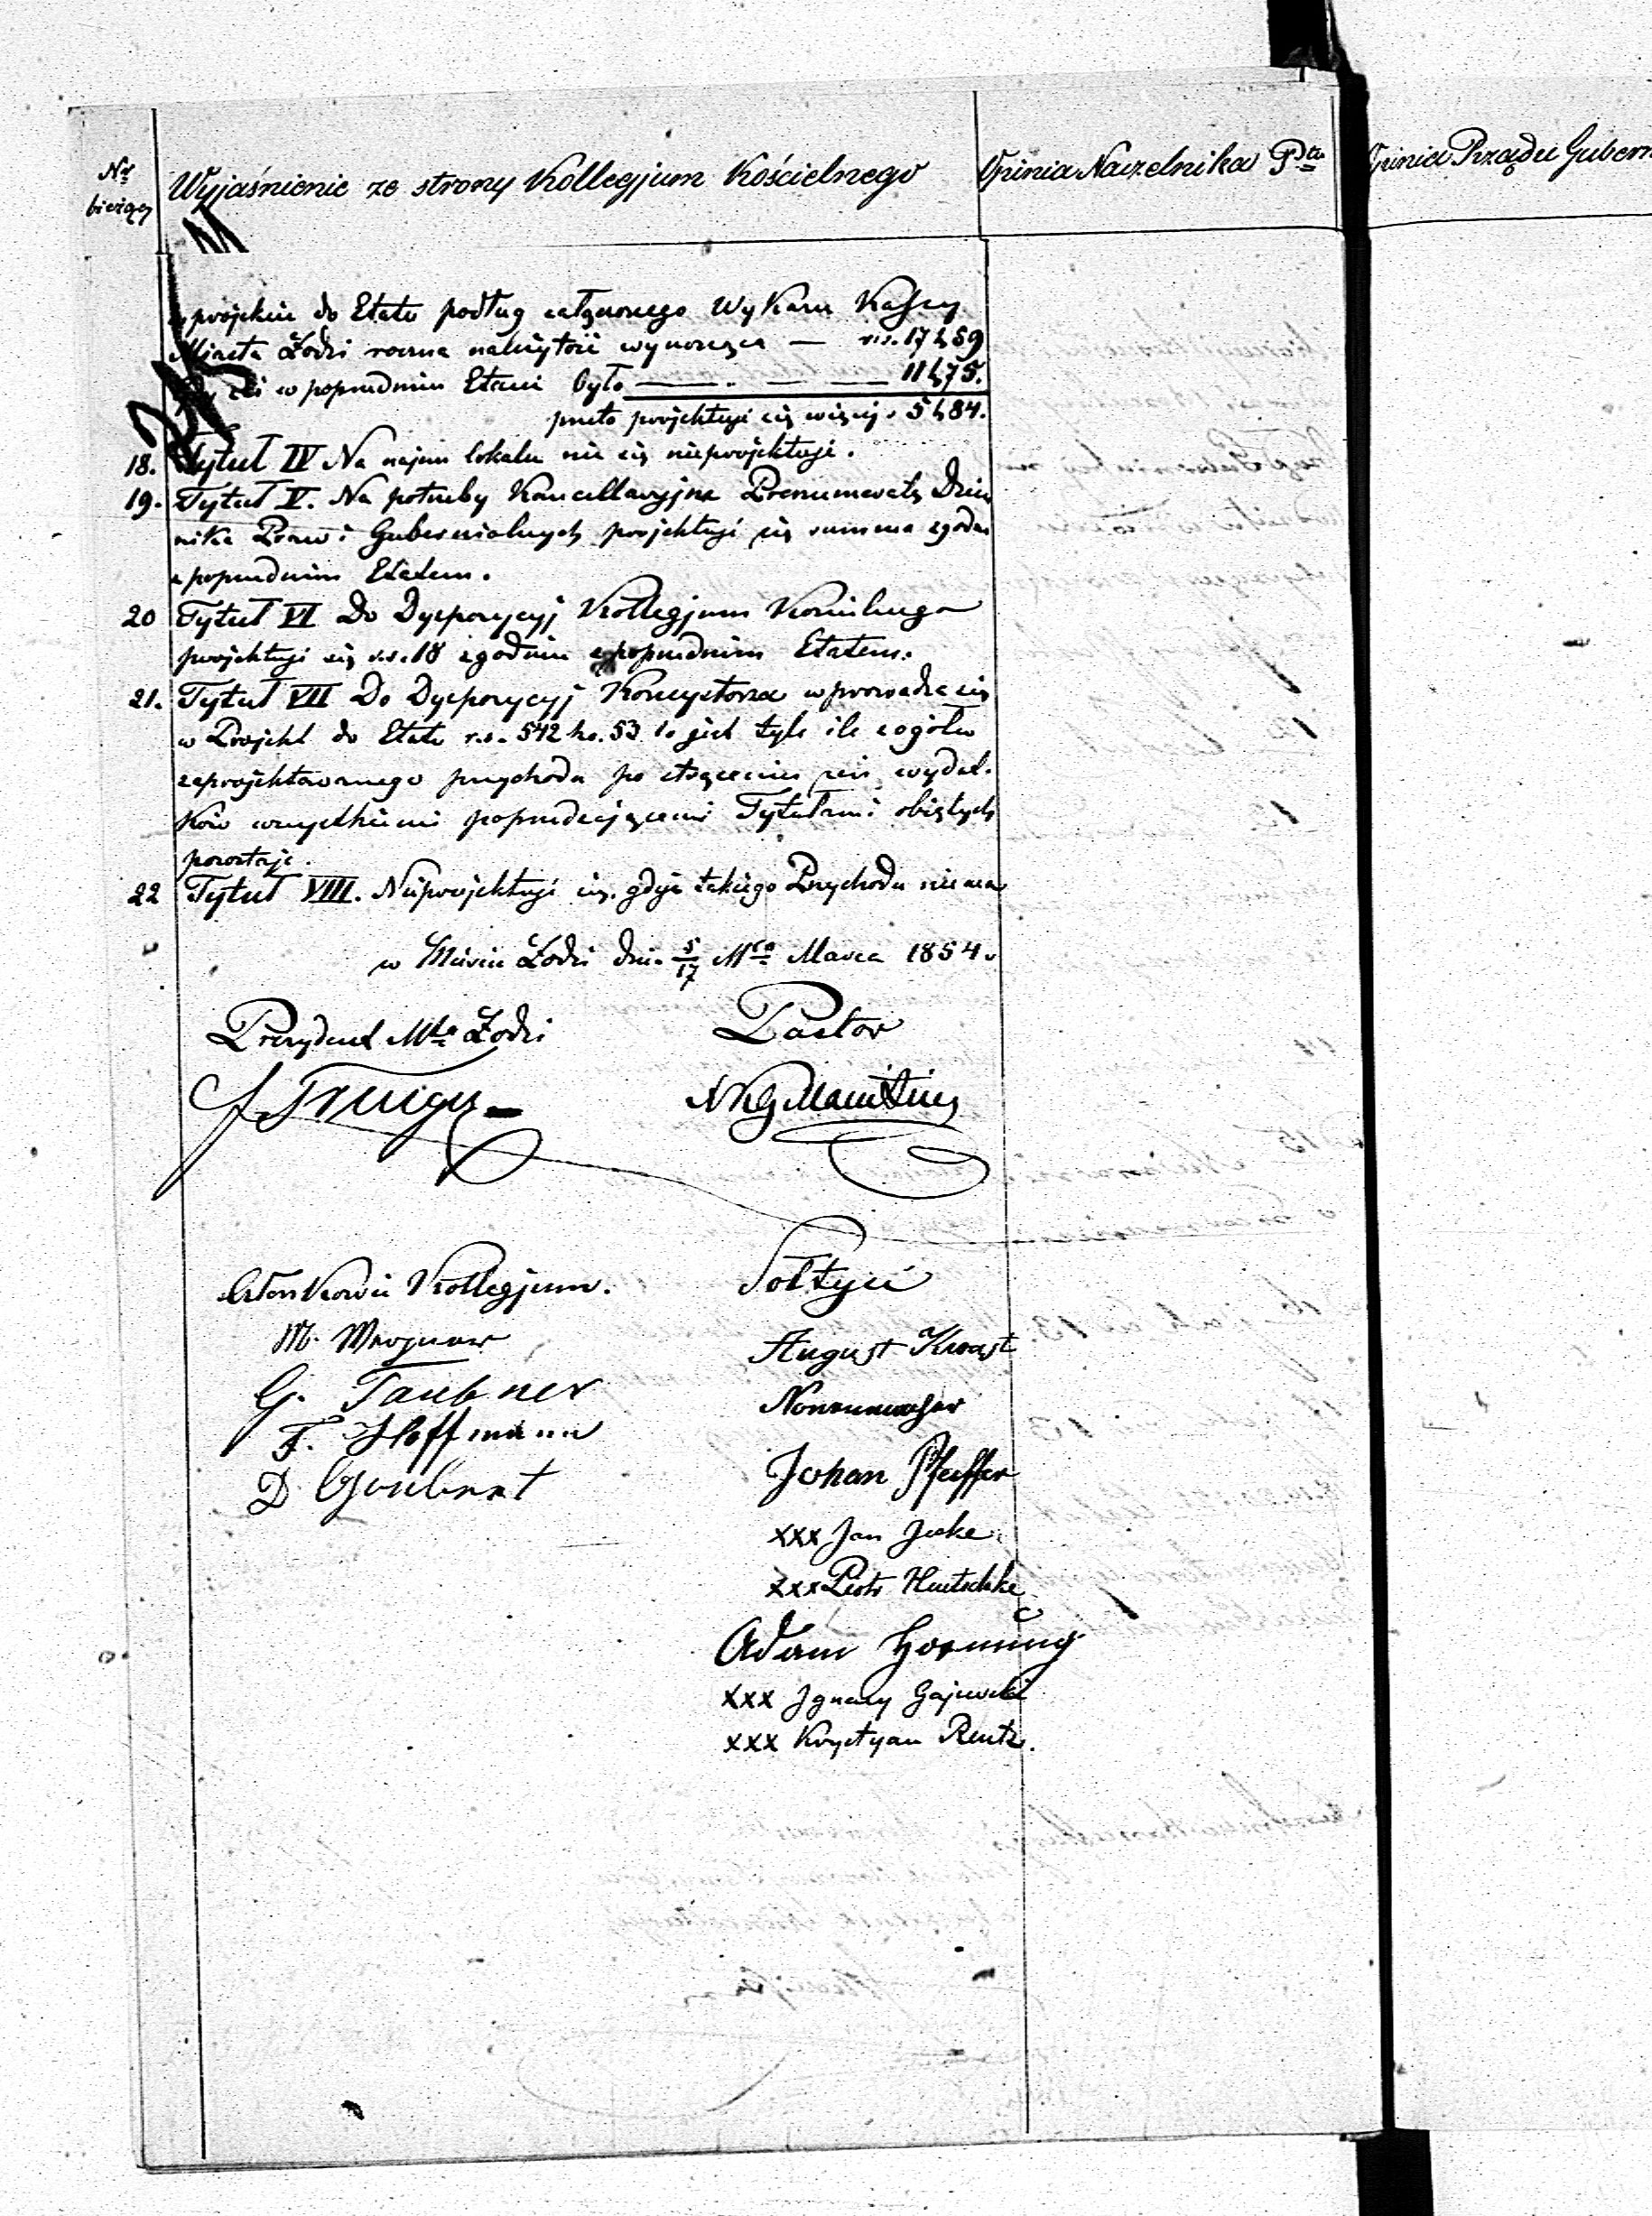 Nr bieżący
Wyjaśnienie ze strony Kollegjum Kościelnego
Opinia Naczelnika Ptu
Opinia Rządu Gubern
projekcie do Etatu podług załączonego Wykazu Kassy
Miasta Łodzi roczna należytość wynosząca — rs. 17 k 59
w poprzednim Etacie było — — — 11 k 75.
przeto projektuje się więcej r. 5 k 84.
18. Tytuł IV Na najem lokalu nic się nieprojektuje.
19. Tytuł V. Na potrzeby Kancellaryjne Prenumeratę Dzien
nika Praw i Gubernialnych projektuje się summa zgodna
z poprzednim Etatem.
20 Tytuł VI Do Dyspozycyj Kollegjum Kościelnego
projektuje się r.s. 18 zgodnie z poprzednim Etatem.
21. Tytuł VII Do Dyspozycyj Konsystorza wprowadza się
w Projekt do Etatu r.s. 542 ko. 53 to jest tyle ile z ogółu
zaprojektowanego przychodu po strąceniu zeń wydat-
ków wszystkiemi poprzedzającemi Tytułami objętych
pozostaje.
22 Tytuł VIII. Nieprojektuje się, gdyż takiego Przychodu niema
w Mieście Łodzi dnia 5/17 Mca Marca 1854 r
Prezydent Mta Łodzi
Pastor
Członkowie Kollegjum.
Sołtysi
G. Taubner
August Kwast
F. Hoffmann
Johan Pfeiffer
xxx Jan
xxx Piotr
Adam Hornung
xxx Ignacy Gajewski
xxx Krystyan Rentz.